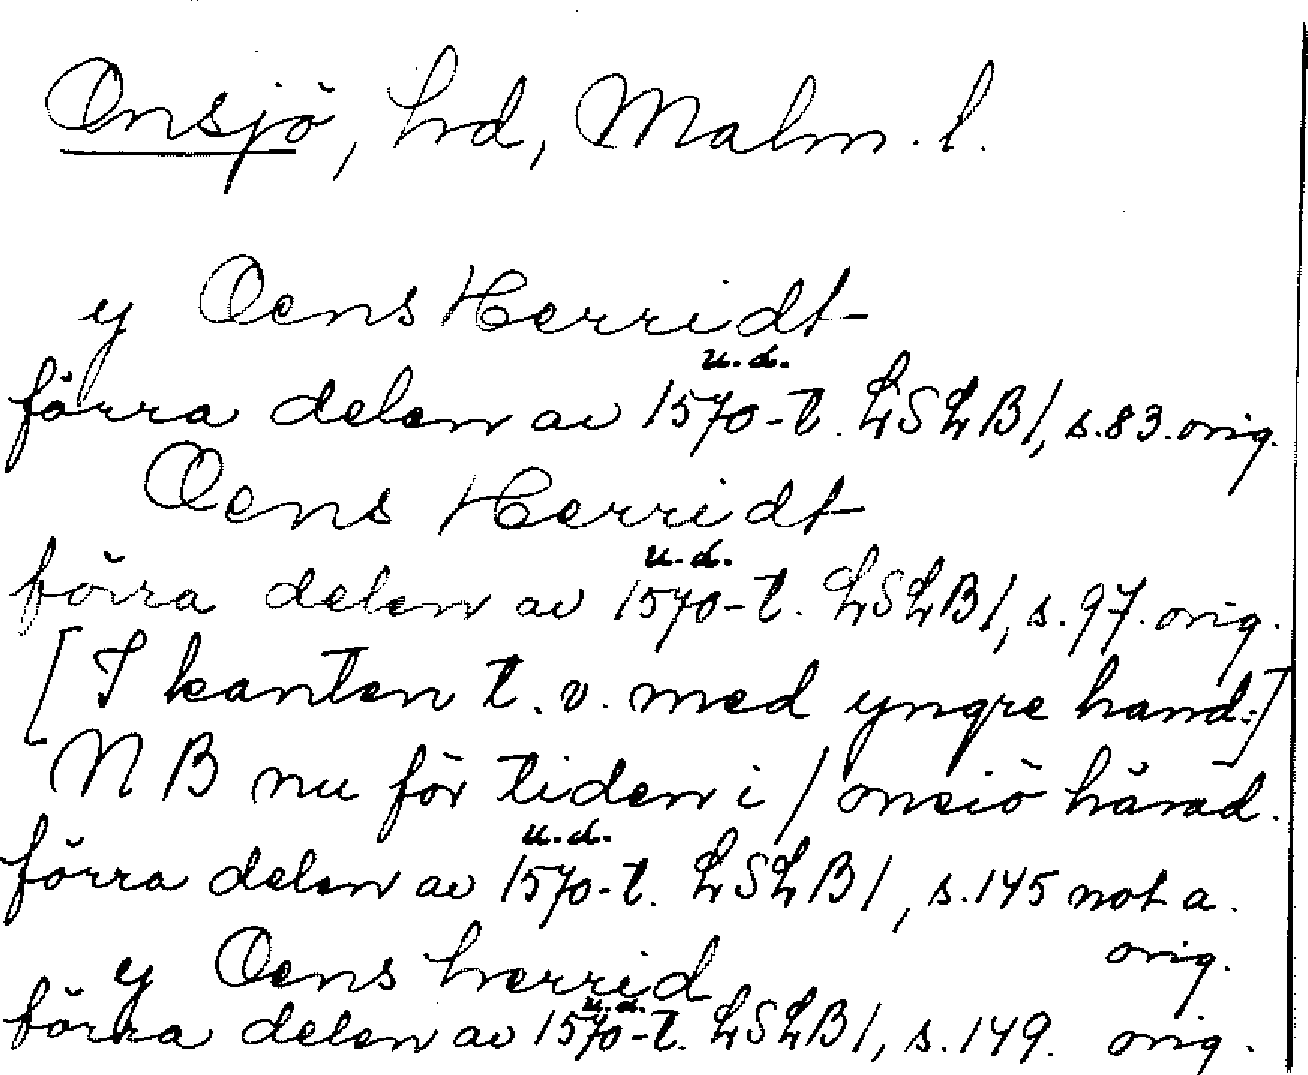 Onsjö, hd, Malm. l.
y Oens Herridt
u. d.
förra delen av 1570-t. LSLB 1, s. 83. orig.
Oens Herridt
u. d.
förra delen av 1570-t. LSLB 1, s. 97. orig.
[I kanten t. v. med yngre hand:]
NB nu för tiden i / onsiö härad.
u. d.
förra delen av 1570-t. LSLB 1, s. 145 not a.
orig.
y Oens herrid
u. d.
förra delen av 1570-t. LSLB 1, s. 149. orig.